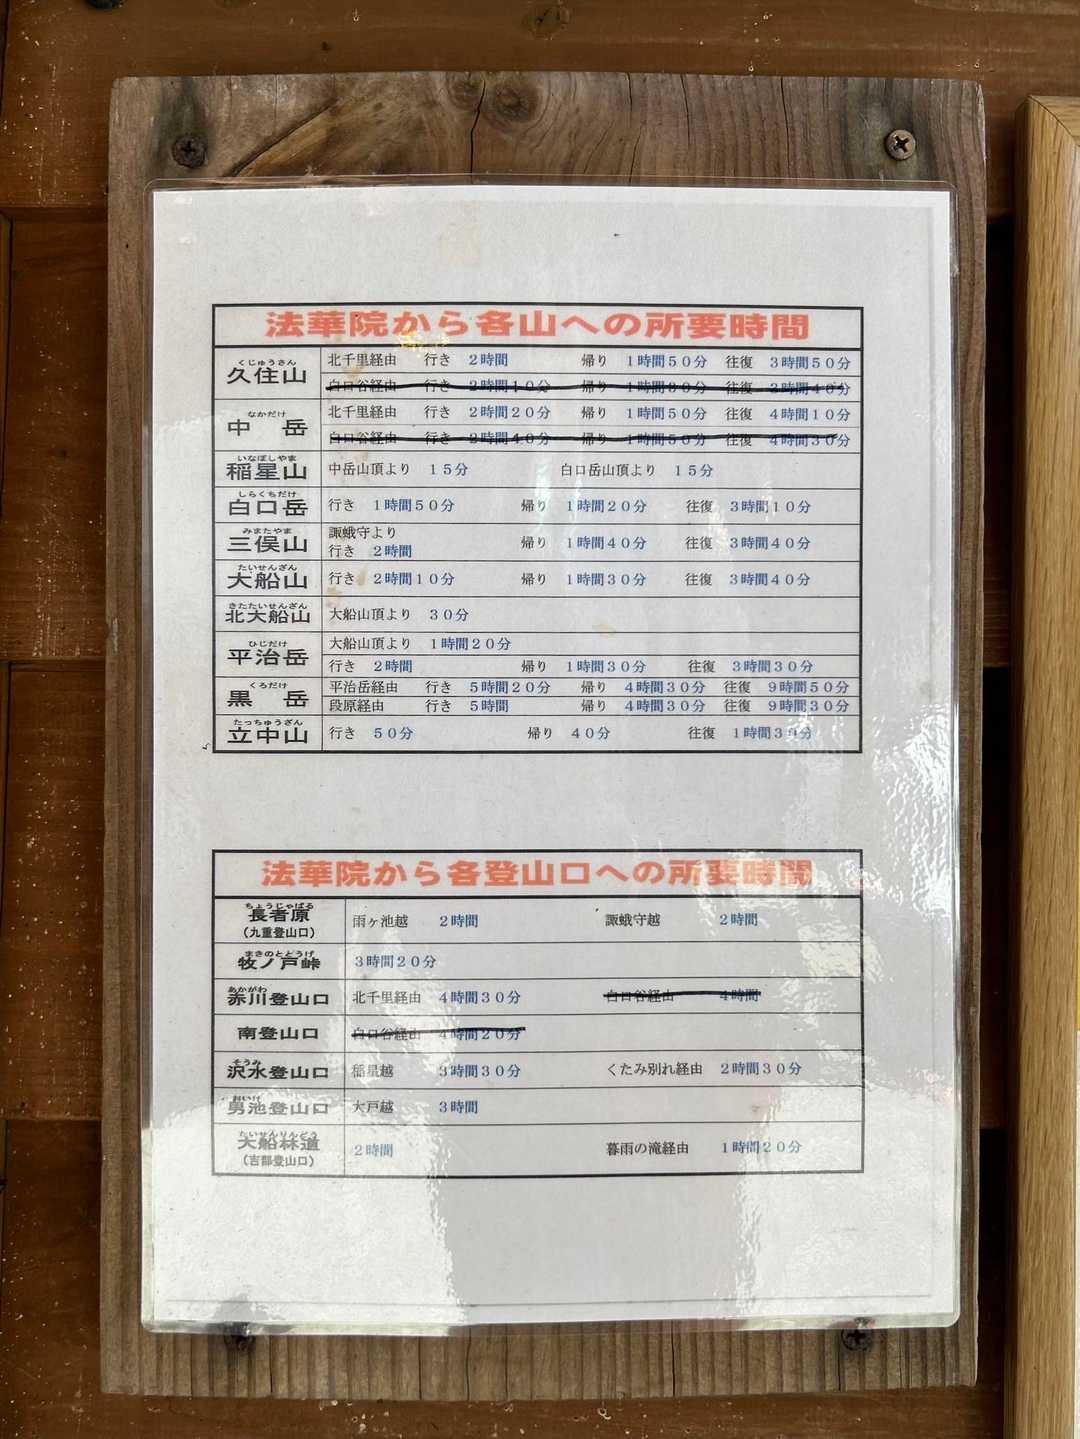 法華院から各山への所要時間
くじゅうさん
久住山 北千里経由 行き 2時間 帰り 1時間50分 往復 3時間50分
白口谷経由 行き 2時間10分 帰り 往復 3時間40分
なかだけ
中 岳 北千里経由 行き 2時間20分 帰り 1時間50分 往復 4時間10分
白口谷経由 行き 2時間40分 帰り 1時間50分 往復 4時間30分
いなぼしやま
稲星山 中岳山頂より 15分 白口岳山頂より 15分
しらくちだけ
白口岳 行き 1時間50分 帰り 1時間20分 往復 3時間10分
みまたやま
三俣山 諏蛾守より
行き 2時間 帰り 1時間40分 往復 3時間40分
たいせんざん
大船山 行き 2時間10分 帰り 1時間30分 往復 3時間40分
きたたいせんざん
北大船山 大船山頂より 30分
ひじだけ
平治岳 大船山頂より 1時間20分
行き 2時間 帰り 1時間30分 往復 3時間30分
くろだけ
黒 岳 平治岳経由 行き 5時間20分 帰り 4時間30分 往復 9時間50分
段原経由 行き 5時間 帰り 4時間30分 往復 9時間30分
たっちゅうざん
立中山 行き 50分 帰り 40分 往復 1時間30分
法華院から各登山口への所要時間
ちょうじゃばる
長者原 雨ヶ池越 2時間 諏蛾守越 2時間
(九重登山口)
まきのととうげ
牧ノ戸峠 3時間20分
あかがわ
赤川登山口 北千里経由 4時間30分 白口谷経由 4時間
南登山口 白口谷経由 4時間20分
そうみ
沢水登山口 稲星越 3時間30分 くたみ別れ経由 2時間30分
おいけ
男池登山口 大戸越 3時間
たいせんりんどう
大船林道 2時間 暮雨の滝経由 1時間20分
(吉部登山口)